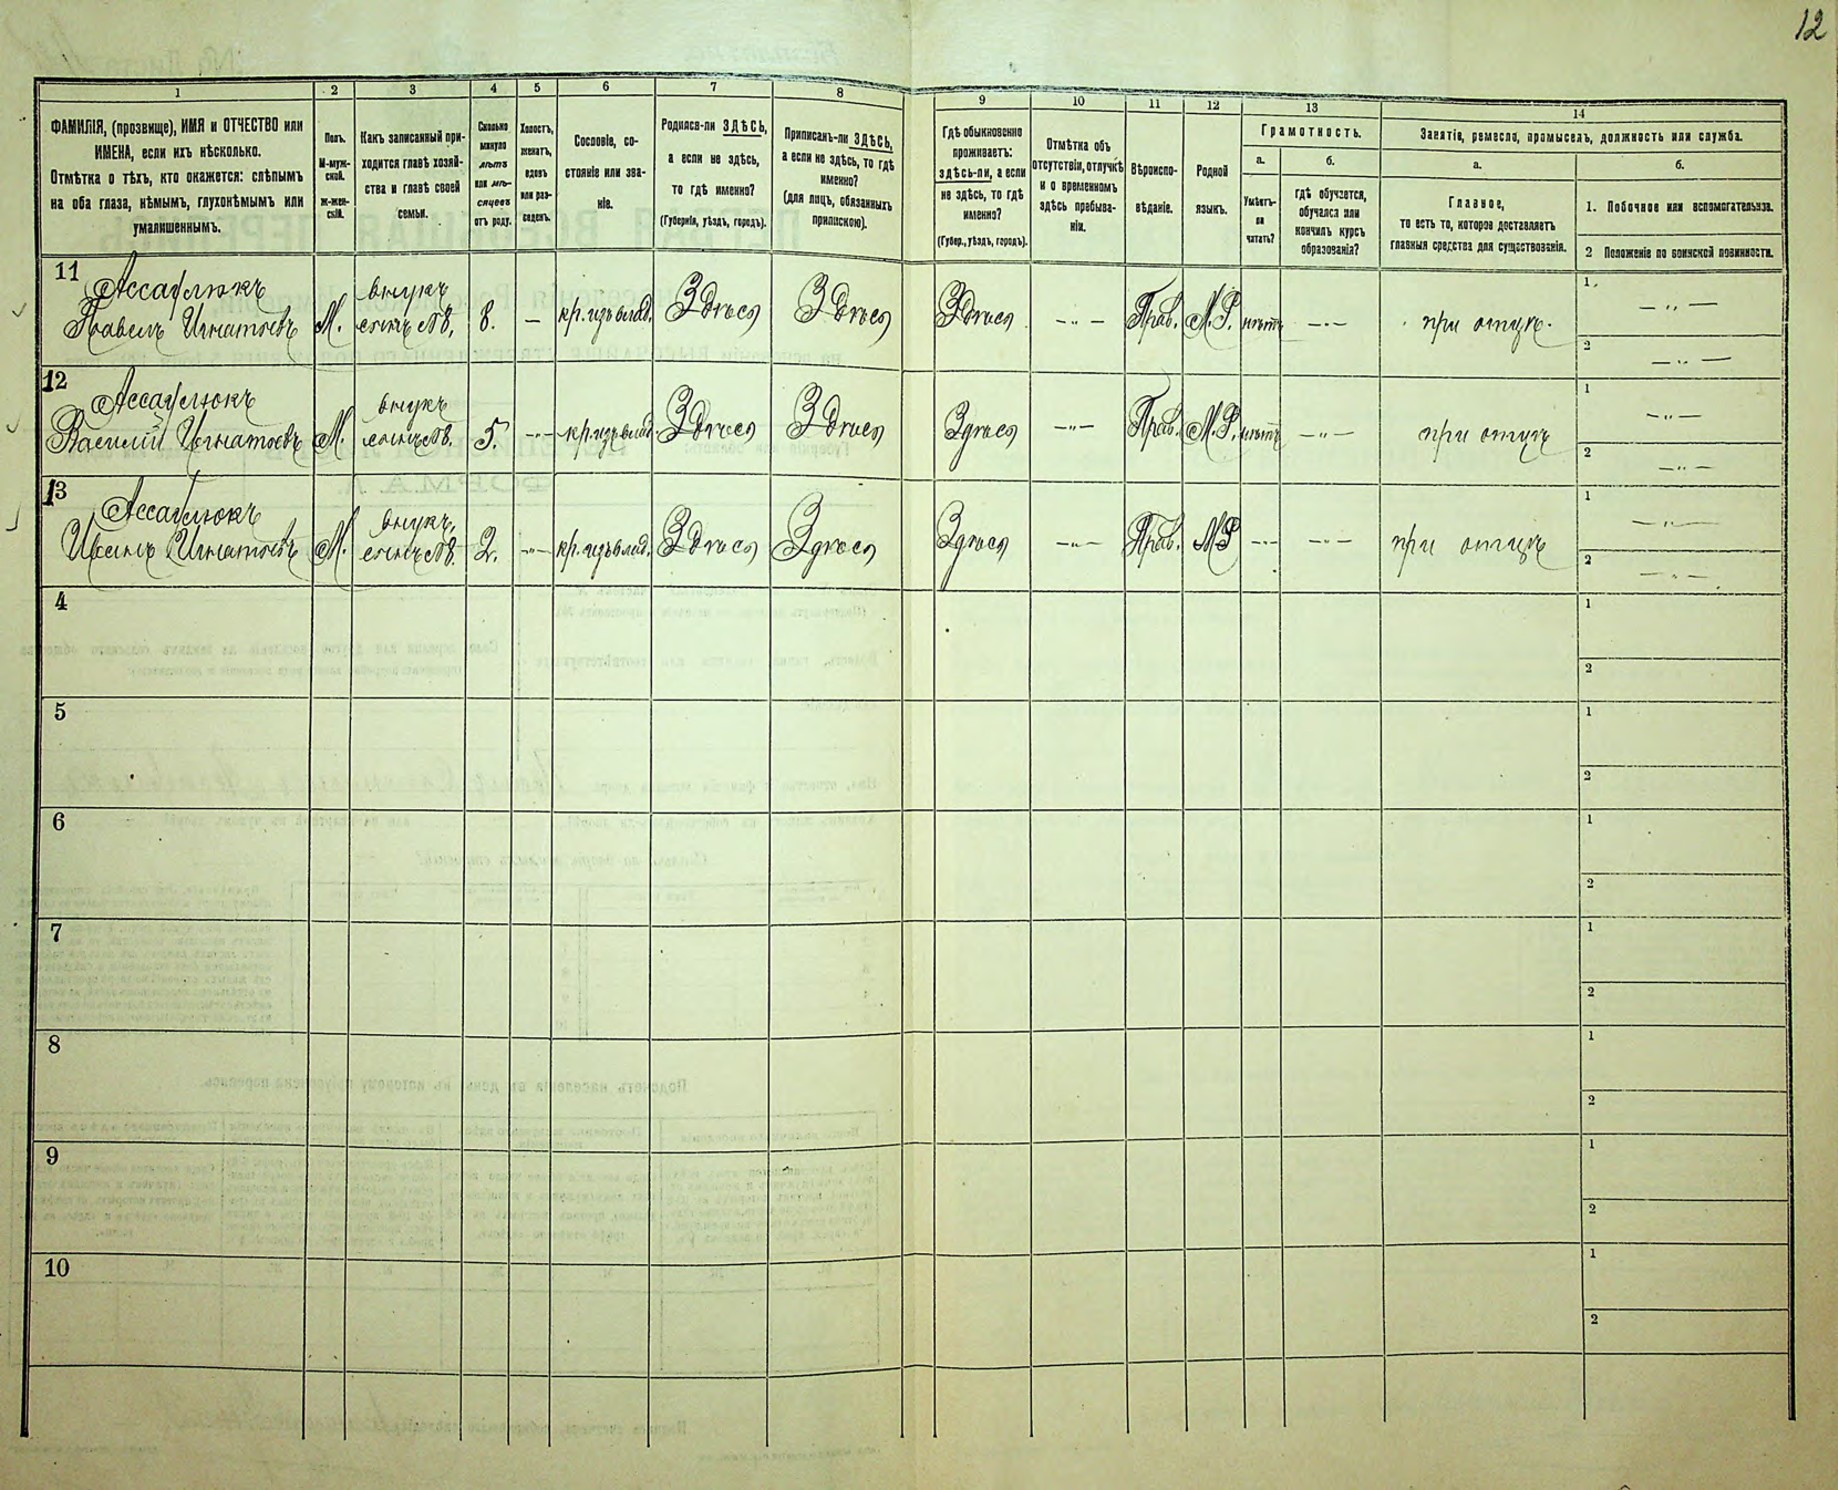 12
1
2
3
4
5
6
7
8
9
10
11
12
13
14
ФАМИЛІЯ, (прозвище), ИМЯ и ОТЧЕСТВО или
ИМЕНА, если ихъ нѣсколько.
Отмѣтка о тѣхъ, кто окажется: слѣпымъ
на оба глаза, нѣмымъ, глухонѣмымъ или
умалишеннымъ.
Полъ.
М-муж-
ской.
Ж-жен-
скій.
Какъ записанный при-
ходится главѣ хозяй-
ства и главѣ своей
семьи.
Сколько
минуло
лѣтъ
или мѣ-
сяцевъ
отъ роду.
Холостъ,
женатъ,
вдовъ
или раз-
веденъ.
Сословіе, со-
стояніе или зва-
ніе.
Родился-ли ЗДѢСЬ,
а если не здѣсь,
то гдѣ именно?
(Губернія, уѣздъ, городъ).
Приписанъ-ли ЗДѢСЬ,
а если не здѣсь, то гдѣ
именно?
(для лицъ, обязанныхъ
припискою).
Гдѣ обыкновенно
проживаетъ:
здѣсь-ли, а если
не здѣсь, то гдѣ
именно?
(Губер., уѣздъ, городъ).
Отмѣтка объ
отсутствіи, отлучкѣ
и о временномъ
здѣсь пребыва-
ніи.
Вѣроиспо-
вѣданіе.
Родной
языкъ.
Грамотность.
а.
Умѣетъ-
ли
читать?
б.
Гдѣ обучается,
обучался или
кончилъ курсъ
образованія?
Занятіе, ремесло, промыселъ, должность или служба.
а.
Главное,
то есть то, которое доставляетъ
главныя средства для существованія.
б.
1. Побочное или вспомогательное.
2 Положеніе по воинской повинности.
11
Ассаулюкъ
Павелъ Игнатьевъ
М.
внукъ
сынъ №8.
8.
—
кр. изъ влад.
Здѣсь
Здѣсь
Здѣсь
-„-
Прав.
М.Р.
нѣтъ
-„-
при отцѣ.
1.
-„-
2
-„-
12
Ассаулюкъ
Василій Игнатьевъ
М.
внукъ
сынъ №8.
5.
-„-
кр. изъ влад.
Здѣсь
Здѣсь
Здѣсь
-„-
Прав.
М.Р.
нѣтъ
-„-
при отцѣ
1
-„-
2
-„-
13
Ассаулюкъ
Игнатьевъ
М.
внукъ,
сынъ №8.
2.
-„-
кр. изъ влад.
Здѣсь
Здѣсь
Здѣсь
-„-
Прав.
МР
-„-
-„-
при отцѣ
1
-„-
2
-„-
4
1
2
5
1
2
6
1
2
7
1
2
8
1
2
9
1
2
10
1
2